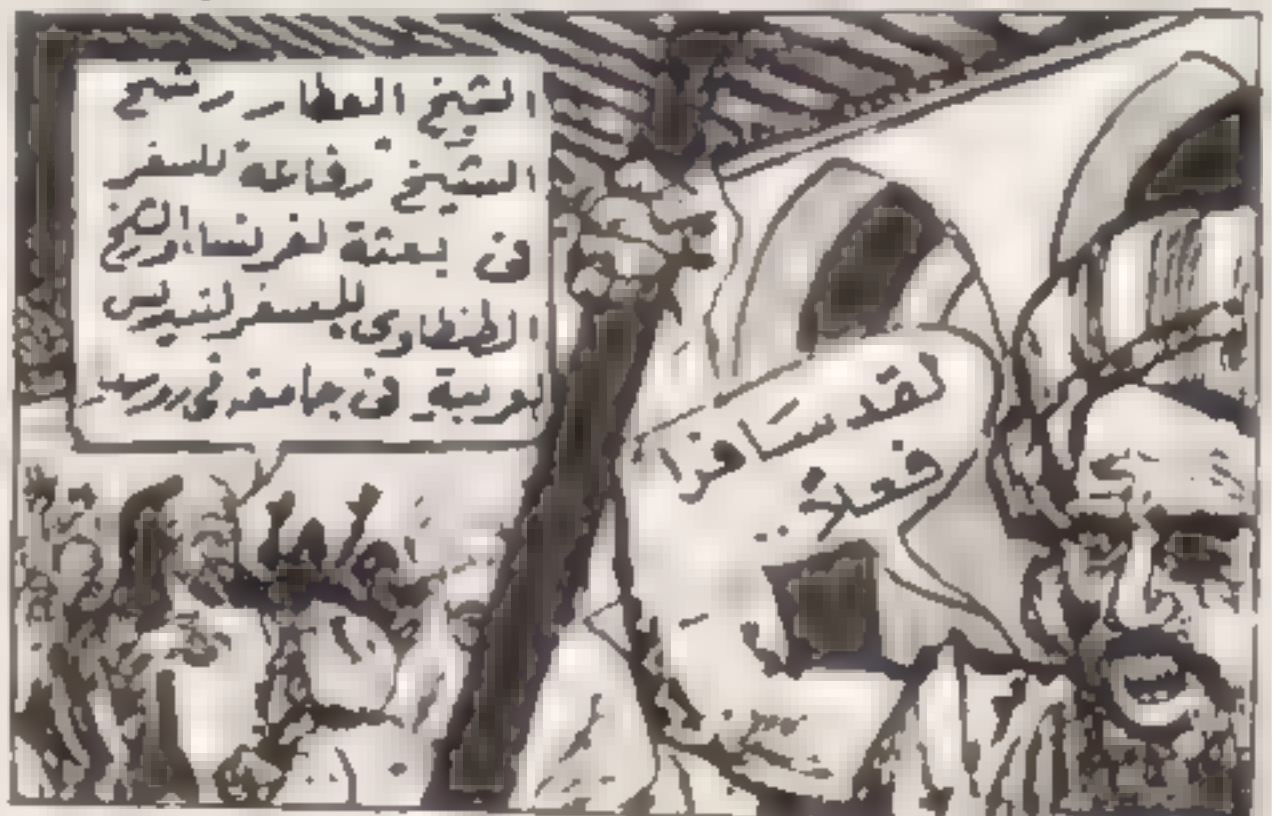 الشيخ العطار رشح
الشيخ رفاعة للسفر
فى بعثة لفرنسا والشيخ
الطنطاوى للسفر لتدريس
العربية فى جامعة فى روسيا
لقد سافرا
فعلاً..